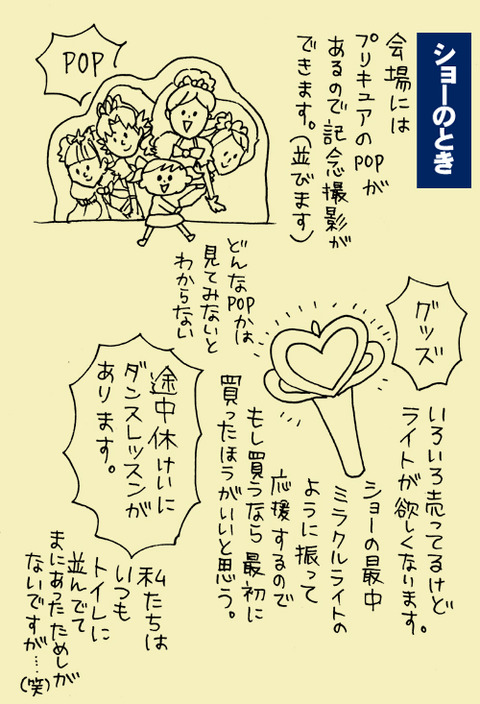 ショーのとき
会場には
プリキュアのPOPが
あるので記念撮影が
できます。(並びます)
POP
どんなPOPかは
見てみないと
わからない
グッズ
いろいろ売ってるけど
ライトが欲しくなります。
ショーの最中
ミラクルライトの
ように振って
応援するので
もし買うなら最初に
買ったほうがいいと思う。
途中休けいに
ダンスレッスンが
あります。
私たちは
いつも
トイレに
並んでて
まにあったためしが
ないですが……(笑)